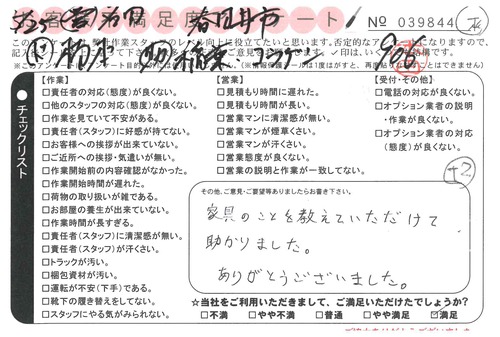 お客様満足度アンケート
5/25
春日井市
No 039844
【作業】
□責任者の対応(態度)が良くない。
□他のスタッフの対応(態度)が良くない。
□作業を見ていて不安がある。
□責任者(スタッフ)に好感が持てない。
□お客様への挨拶が出来ていない。
□ご近所への挨拶・気遣いが無い。
□作業開始前の内容確認がなかった。
□作業開始時間が遅れた。
□荷物の取り扱いが雑である。
□お部屋の養生が出来ていない。
□作業時間が長すぎる。
□責任者(スタッフ)に清潔感が無い。
□責任者(スタッフ)が汗くさい。
□トラックが汚い。
□梱包資材が汚い。
□運転が不安(下手)である。
□靴下の履き替えをしてない。
□スタッフにやる気がみられない。
【営業】
□見積もり時間に遅れた。
□見積もり時間が長い。
□営業マンに清潔感が無い。
□営業マンが煙草くさい。
□営業マンが汗くさい。
□営業態度が良くない。
□営業の説明と作業が一致してない。
【受付・その他】
□電話の対応が良くない。
□オプション業者の説明
・作業が良くない。
□オプション業者の対応
(態度)が良くない。
+2
チェックリスト
その他、ご意見・ご要望等ありましたらお書き下さい。
家具のことを教えていただけて
助かりました。
ありがとうございました。
☆当社をご利用いただきまして、ご満足いただけたでしょうか?
□不満 □やや不満 □普通 □やや満足 ☑満足